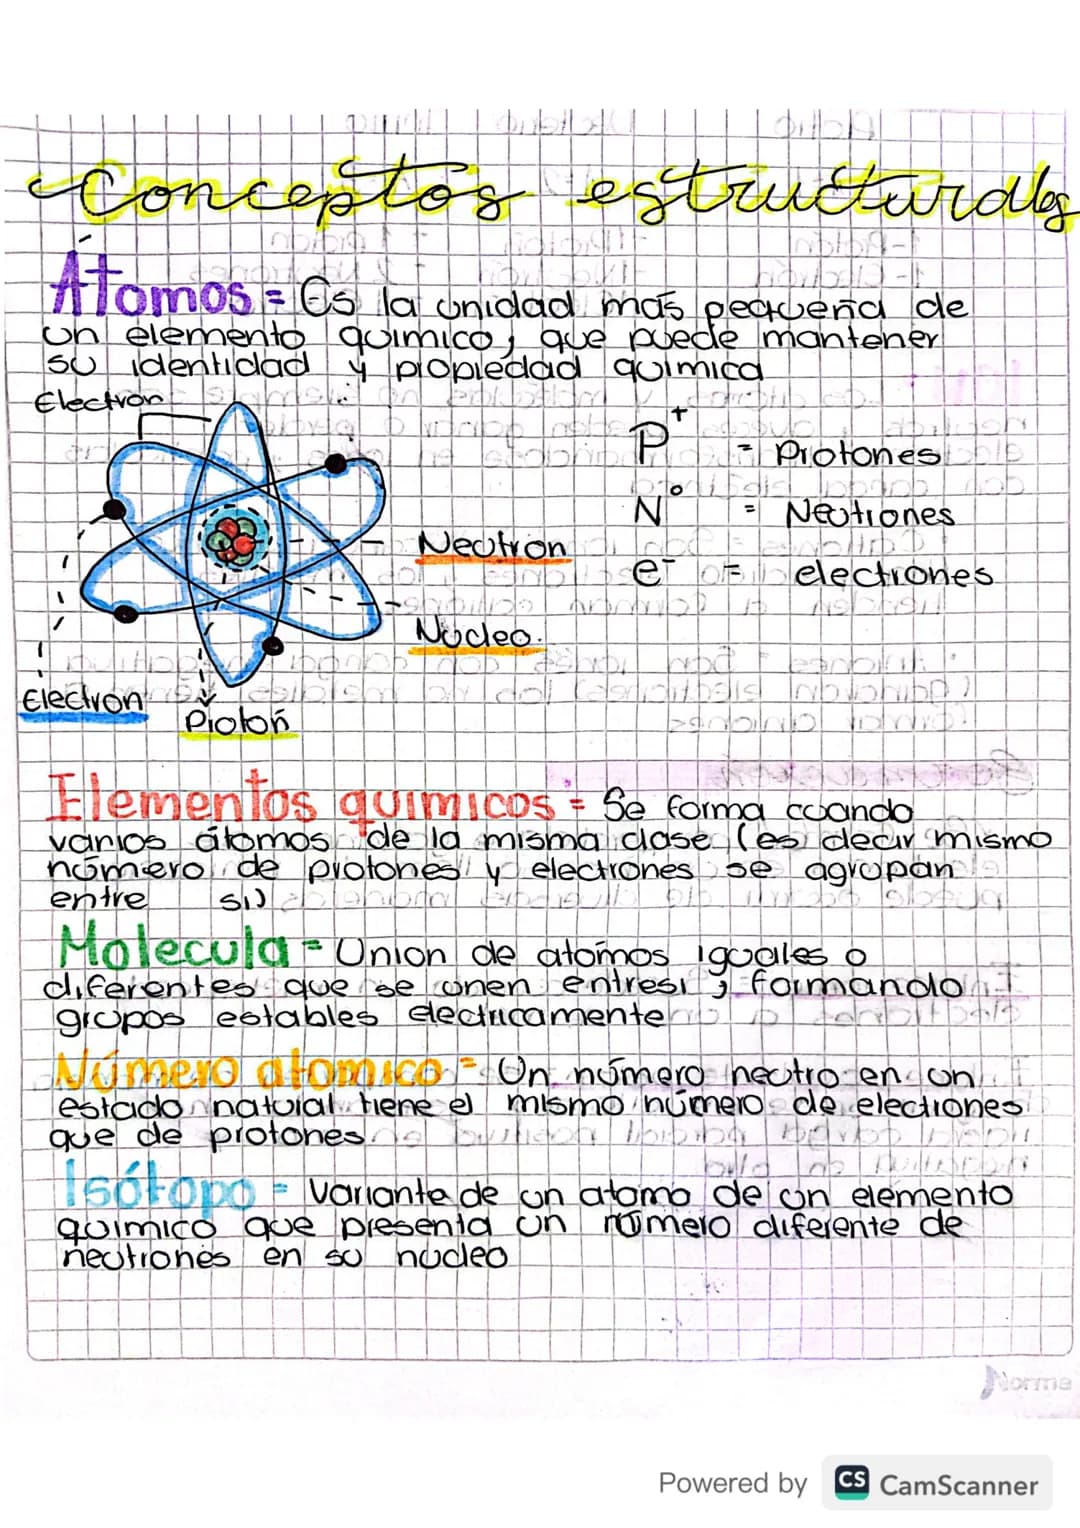 Conceptos estructurales
Átomos = Es la unidad más pequeña de
un elemento químico, que puede mantener
su identidad y propiedad química
Electron
P+ = Protones
N° = Neutrones
Neutron
e- = electrones
Núcleo.
Electron
Proton
Elementos químicos = Se forma cuando
varios átomos de la misma clase (es decir mismo
número de protones y electrones se agrupan
entre si)
Molecula = Union de atomos iguales o
diferentes que se unen entresi, formando
grupos estables electricamente
Número atomico = Un número neutro en un
estado natural tiene el mismo número de electrones
que de protones
Isótopo = Variante de un atomo de un elemento
químico que presenta un número diferente de
neutrones en su núcleo
Norma
Powered by CS CamScanner